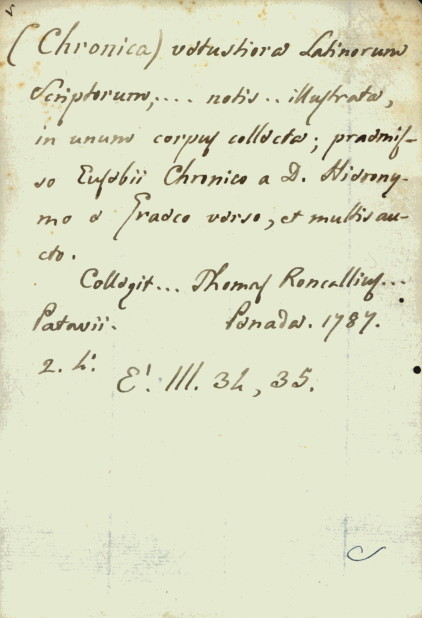 (Chronica) vetustiora Latinorum
Scriptorum,.... notis .. illustrata,
in unum corpus collecta; praemis-
so Eusebii Chronico a D. Hierony-
mo e Graeco verso, et multis au-
cto.
Collegit... Thomas Roncallius...
Patavii. Penada. 1787.
2. 4°.
E'. III. 34, 35.